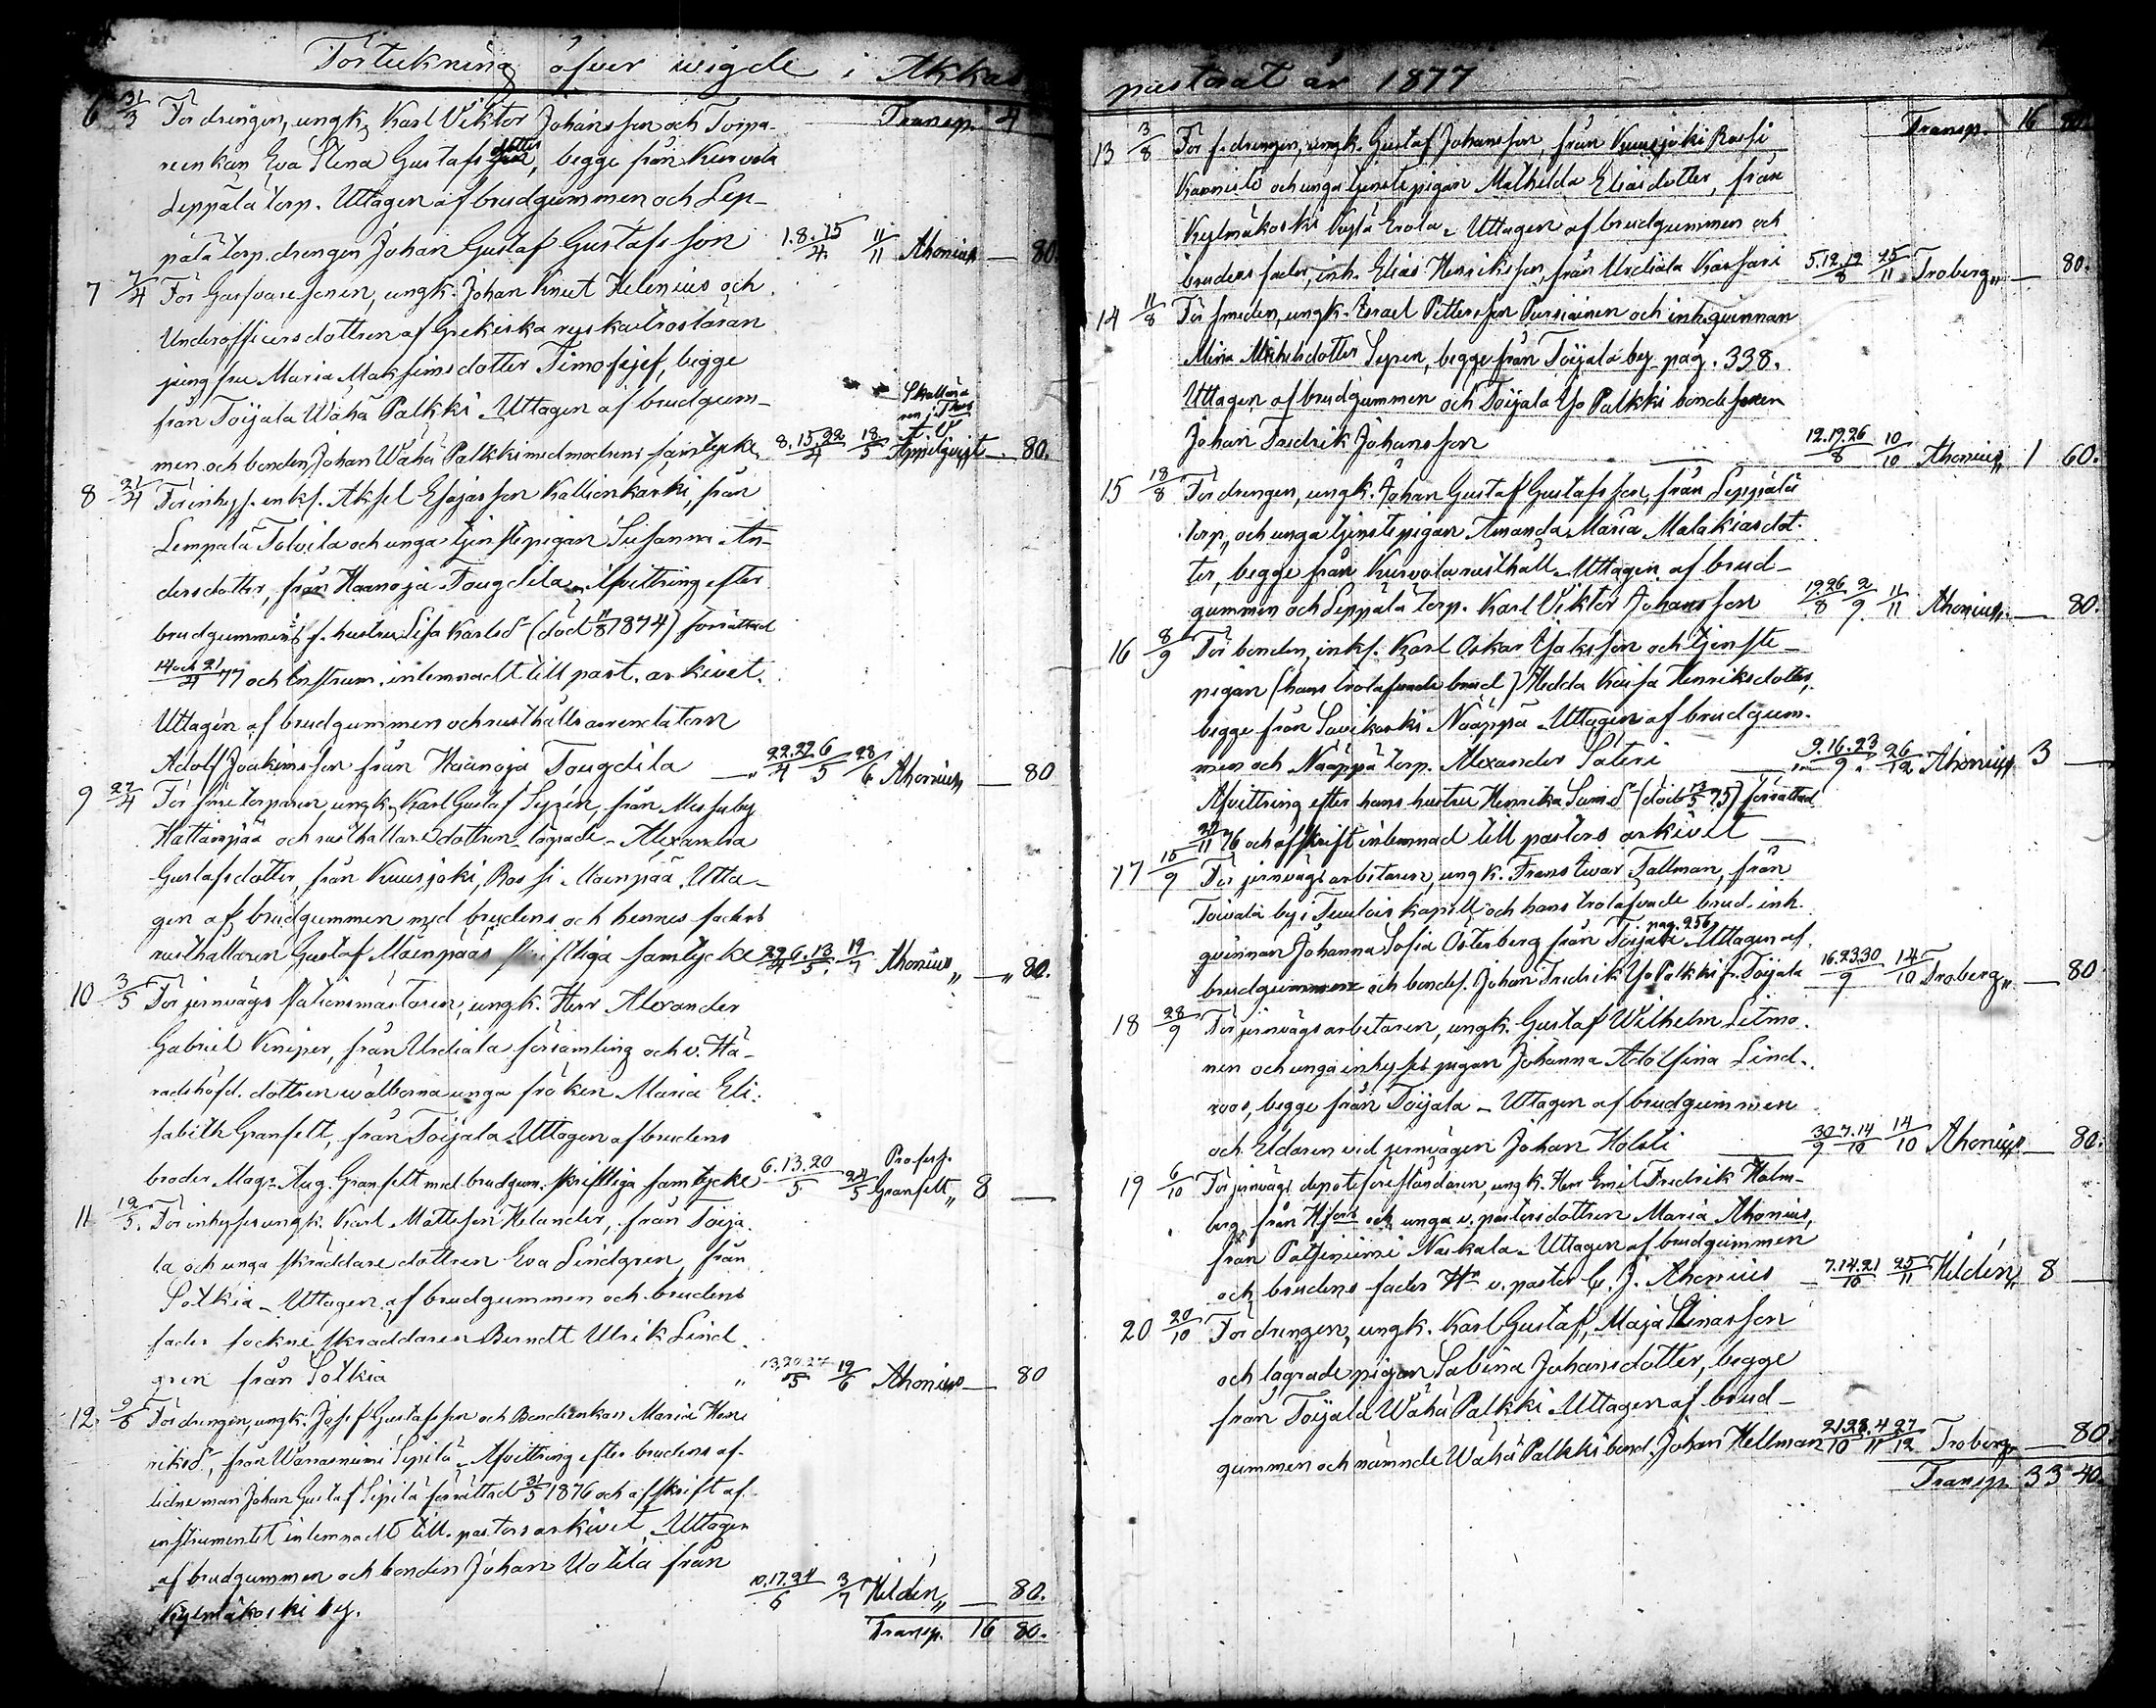 Förtekning öfver wigde i Akkas
6 31/3 För drengen, ungk. Karl Viktor Johansson och Torpa- Transp. 4
reenkan Eva Stina Gustafsdotter, begge från Kurvola
Leppälä torp. Uttagen af brudgummen och Lep-
pälä torp. drengen Johan Gustaf Gustafsson 1.8.15/4 11/11 Ahonius — 80.
7 7/4 För Garfvaresonen, ungk. Johan Knut Helenius och
Underofficersdottren af Grekiska ryska trosläran
jungfru Maria Maksimsdotter Timofejef, begge
från Toijala Wähä Palkki. Uttagen af brudgum-
men och bonden Johan Wähä Palkki med modrens samtycke 8.15.22/4 18/5 Appelqvist — 80.
8 21/4 För inhys. enkl. Aksel Esajasson Kallionkarki, från
Lempälä Tolvila och unga tjenstepigan Susanna An-
dersdotter, från Haanoja Tougdila. Afvittring efter
brudgummens f. hustru Lisa Karlsd. (död 11/8 1874) förrättad
14 och 21/4 77 och Instrum. inlemnadt till past. arkivet.
Uttagen af brudgummen och rusthållsarrendatorn
Adolf Joakimsson från Haanoja Tougdila 22.29/4 6/5 28/6 Ahonius — 80
9 27/4 För torparen, ungk. Karl Gustaf Syrén, från
Hattanpää och rusthållaredottren lägrade Alexandra
Gustafsdotter, från Kuusjoki, Rossi Mäenpää. Utta-
gen af brudgummen med brudens och hennes faders
rusthållaren Gustaf Mäenpääs skriftliga samtycke 29/4 6.13/5 19/7 Ahonius — 80.
10 3/5 För jernvägs stationsmästaren, ungk. Herr Alexander
Gabriel Kniper, från Urdiala församling och v. Hä-
radshöfd. dottren wälborna unga fröken Maria Eli-
sabeth Granfelt, från Toijala. Uttagen af brudens
broder Mag. Aug. Granfelt med brudgum. skriftliga samtycke 6.13.20/5 24/5 Profess. Granfelt 8 —
11 12/5 För inhyses ungk. Karl Mattsson Helander, från Toija-
la och unga skräddaredottren Eva Lindgren, från
Sotkia. Uttagen af brudgummen och brudens
fader sockneskräddaren Berndt Ulrik Lind-
gren från Sotkia 13.20.27/5 19/6 Ahonius — 80
12. 9/6 För drengen, ungk. Josef Gustafsson och Bondeenkan Maria Hen-
riksd., från Warraniemi Sipilä. Afvittring efter brudens af-
lidne man Johan Gustaf Sipilä förrättad 31/5 1876 och afskrift af
instrumentet inlemnadt till pastorsarkivet. Uttagen
af brudgummen och bonden Johan Uotila från
Kylmäkoski by. 10.17.24/6 3/7 Heldén — 80.
Transp. 16 80.
pastorat år 1877
Transp. 16 80.
13 3/8 För f. drengen, ungk. Gustaf Johansson, från Kuusjoki Rossi
Kannisto och unga tjenstepigan Mathilda Eliasdotter, från
Kylmäkoski Kylä Erola. Uttagen af brudgummen och
brudens fader, inh. Elias Henriksson, från Urdiala Kassari 5.12.19/8 25/11 Troberg — 80.
14 11/8 För smeden, ungk. Israel Pettersson Pursiainen och inh. qvinnan
Mina Mikelsdotter Syren, begge från Toijala by pag. 338.
Uttagen af brudgummen och Toijala Yo Palkki bondesonen
Johan Fredrik Johansson 12.19.26/8 10/10 Ahonius 1 60.
15 18/8 För drengen, ungk. Johan Gustaf Gustafsson, från Leppälä
torp, och unga tjenstepigan Amanda Maria Malakiasdot-
ter, begge från Kurvola rusthåll. Uttagen af brud-
gummen och Leppälä torp. Karl Viktor Johansson 19.26/8 2/9 11/11 Ahonius — 80.
16 8/9 För bonden, enkl. Karl Oskar Isaksson och tjenste-
pigan (hans trolofvade brud) Hedda Kaisa Henriksdotter,
begge från Savikoski Nääppä. Uttagen af brudgum-
men och Nääppä torp. Alexander Säteri 9.16.23/9 26/12 Ahonius 3 —
Afvittring efter hans hustru Henrika Samd. (död 13/5 75) förrättad
/11 76 och afskrift inlemnad till pastors arkivet
17 15/9 För jernvägsarbetaren, ungk. Frans Iwar Tallman, från
Toivala by i Tuulois kapell och hans trolofvade brud inh.
qvinnan Johanna Sofia Österberg från Toijala pag. 256. Uttagen af
brudgummen och bondes. Johan Fredrik Yo Palkki fr. Toijala 16.23.30/9 14/10 Troberg — 80.
18 28/9 För jernvägsarbetaren, ungk. Gustaf Wilhelm Litmo-
nen och unga inhyses pigan Johanna Adolfina Lind-
roos, begge från Toijala. Uttagen af brudgummen
och Eldaren vid jernvägen Johan Holsti 30/9 7.14/10 14/10 Ahonius — 80.
19 6/10 För jernvägs depotsföreståndaren, ungk. Herr Emil Fredrik Holm-
berg, från Hfors och unga v. pastorsdottren Maria Ahonius,
från Patjeniemi Naskala. Uttagen af brudgummen
och brudens fader Hr v. pastor C. J. Ahonius 7.14.21/10 25/11 Heldén 8 —
20 20/10 För drengen, ungk. Karl Gustaf, Maja Stinasson
och lägrade pigan Sabina Johansdotter, begge
från Toijala Wähä Palkki. Uttagen af brud-
gummen och nämnde Wähä Palkki bond. Johan Hellman 21.28/10 4/11 27/12 Troberg — 80.
Transp. 33 40.